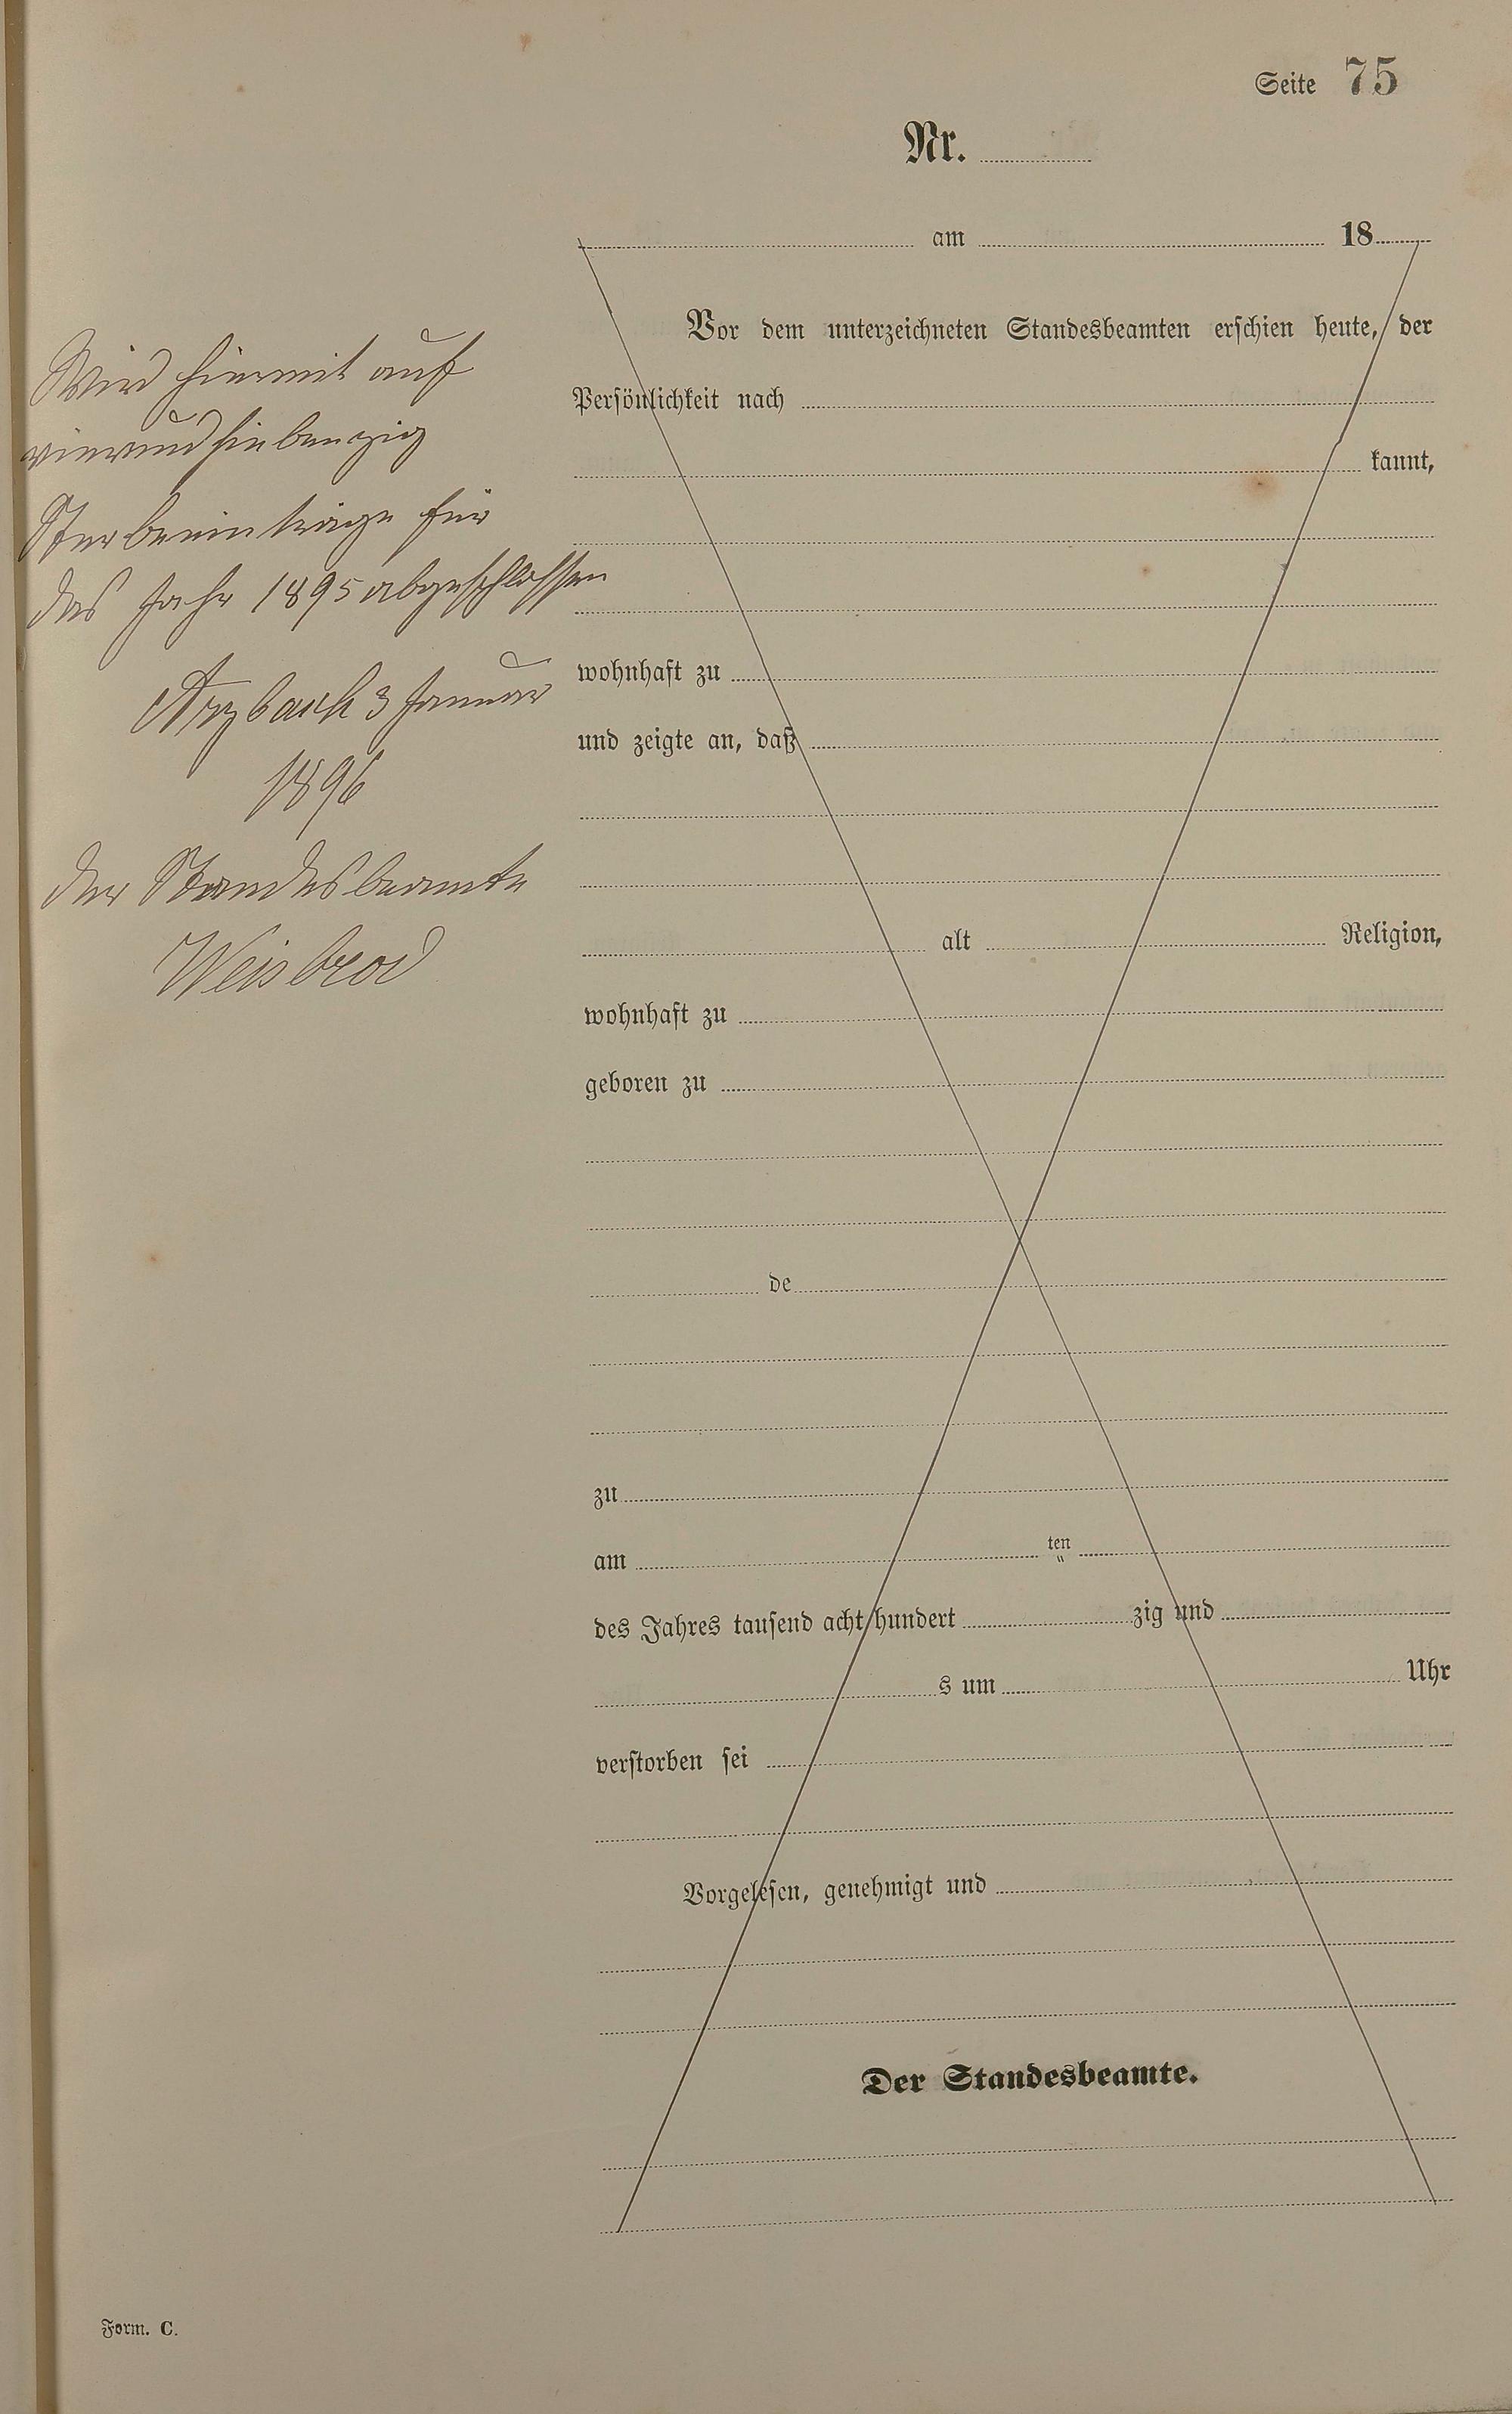 Seite 75
Nr.
am 18
Vor dem unterzeichneten Standesbeamten erschien heute, der
Persönlichkeit nach
kannt,
wohnhaft zu
und zeigte an, daß
alt Religion,
wohnhaft zu
geboren zu
de
zu
am ten
des Jahres tausend acht hundert zig und
s um Uhr
verstorben sei
Vorgelesen, genehmigt und
Der Standesbeamte.
Wird hiermit auf
vierundsiebenzig
Sterbeeinträge für
das Jahr 1895 abgeschlossen
Arzbach 3 Januar
1896
Der Standesbeamte
Weisbrod
Form. C.